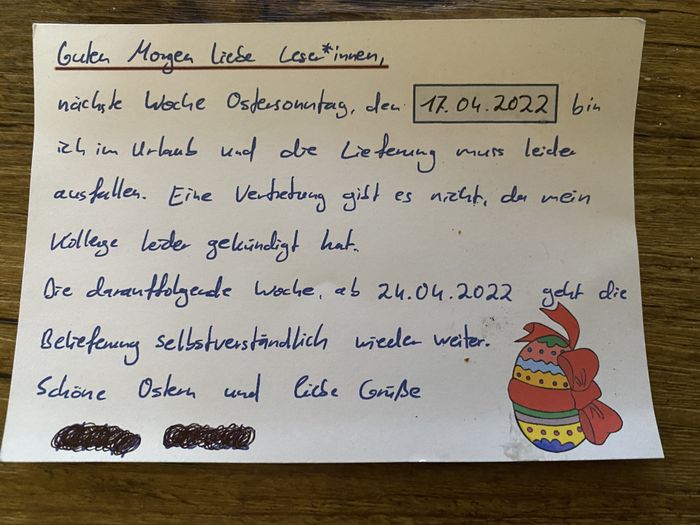 Guten Morgen liebe Leser*innen,
nächste Woche Ostersonntag, den 17.04.2022 bin
ich im Urlaub und die Lieferung muss leider
ausfallen. Eine Vertretung gibt es nicht, da mein
Kollege leider gekündigt hat.
Die darauffolgende Woche, ab 24.04.2022 geht die
Belieferung selbstverständlich wieder weiter.
Schöne Ostern und liebe Grüße